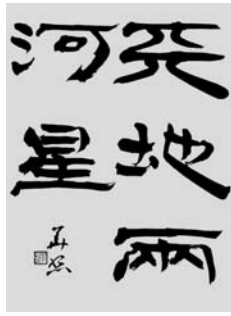 天地兩
河星